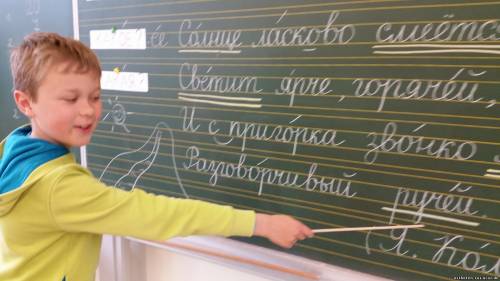 Со́лнце ла́сково смеётс
Све́тит я́рче, горяче́й,
И с приго́рка зво́нко
Разгово́рчивый руче́й.
(Я. Ко́л